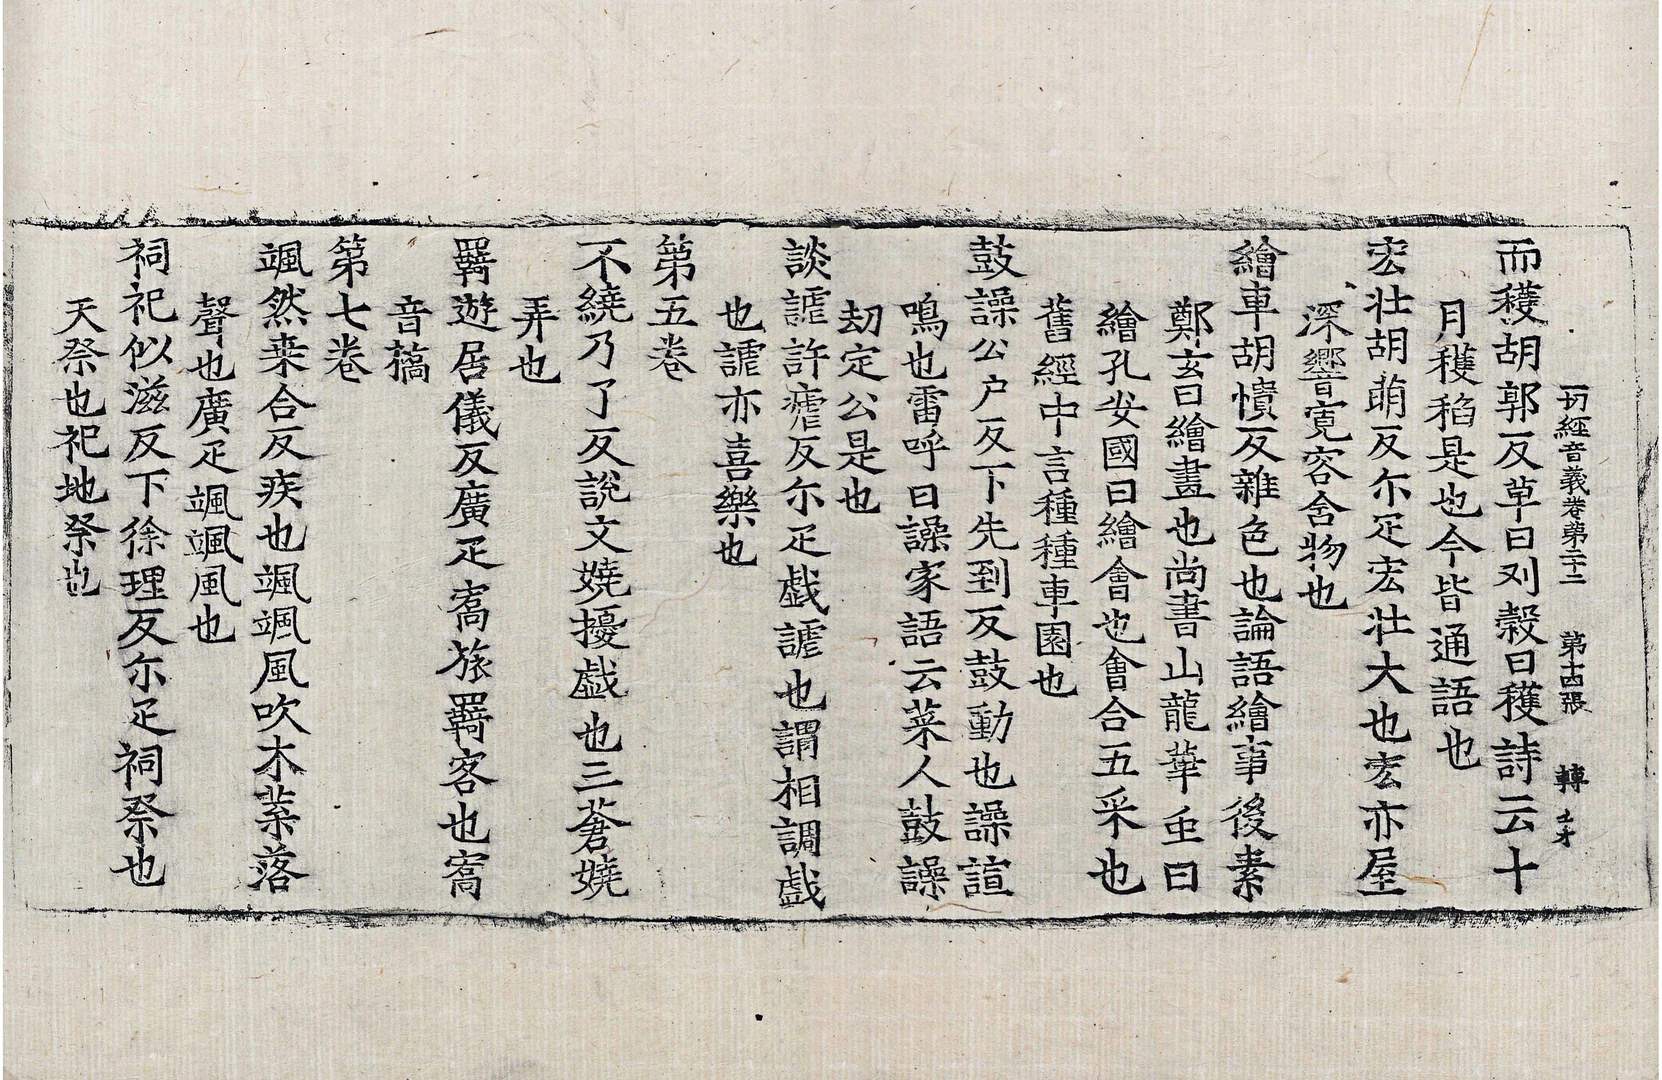 一切經音義卷第二十二　第十四張　轉　才
而穫胡郭反草曰刈穀曰穫詩云十
月穫稻是也今皆通語也
宏壯胡萌反尒疋宏壯大也宏亦屋
深響寬容舍物也
繪車胡憒反雜色也論語繪事後素
鄭玄曰繪畫也尚書山龍華虫曰
繪孔安國曰繪會也會合五采也
舊經中言種種車園也
鼓譟公户反下先到反鼓動也譟諠
鳴也雷呼曰譟家語云萊人鼓譟
刼定公是也
談謔許虐反尒疋戱謔也謂相調戱
也謔亦喜樂也
第五卷
不繞乃了反說文嬈擾戱也三蒼嬈
弄也
羇遊居儀反廣疋寄旅羇客也寄
音
第七卷
颯然桒合反疾也颯颯風吹木葉落
聲也廣疋颯颯風也
祠祀似滋反下徐理反尒疋祠祭也
天祭也祀地祭也